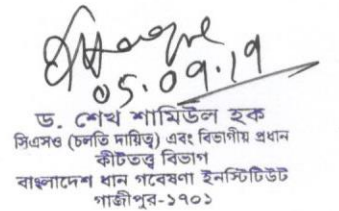 05.09.19
ড. শেখ শামিউল হক
সিএসও (চলতি দায়িত্ব) এবং বিভাগীয় প্রধান
কীটতত্ত্ব বিভাগ
বাংলাদেশ ধান গবেষণা ইনস্টিটিউট
গাজীপুর-১৭০১